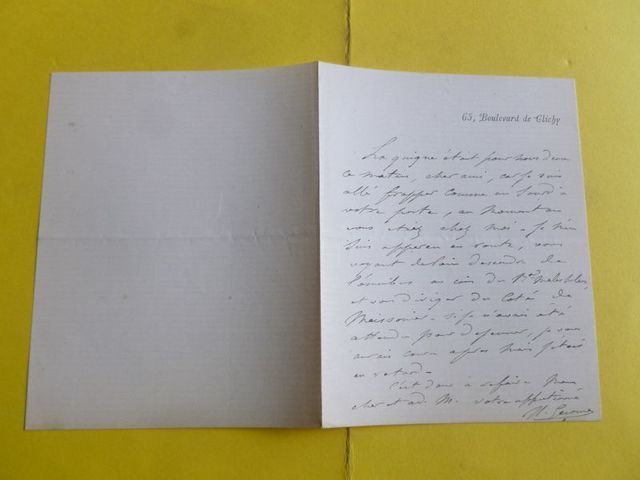 65, Boulevard de Clichy
La guigne était pour nous deux
ce matin, cher ami, car je suis
allé frapper comme un sourd à
votre porte, au moment où
vous étiez chez moi - je m'en
suis aperçu en route, vous
voyant de loin descendre de
l'omnibus au coin du Bd Malesherbes,
et vous diriger du côté de
Meissonier - si je n'avais été
attendu pour déjeuner, je vous
aurais couru après mais j'étais
en retard -
C'est donc à refaire - Mon
cher et votre